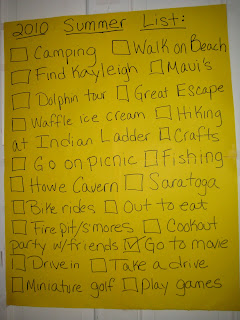 2010 Summer List:
☐ Camping ☐ Walk on Beach
☐ Find Kayleigh ☐ Maui's
☐ Dolphin tour ☐ Great Escape
☐ Waffle ice cream ☐ Hiking
at Indian Ladder ☐ Crafts
☐ Go on picnic ☐ Fishing
☐ Howe Cavern ☐ Saratoga
☐ Bike rides ☐ Out to eat
☐ Fire pit/s'mores ☐ Cookout
party w/friends ☑ Go to movie
☐ Drive in ☐ Take a drive
☐ Miniature golf ☐ Play games